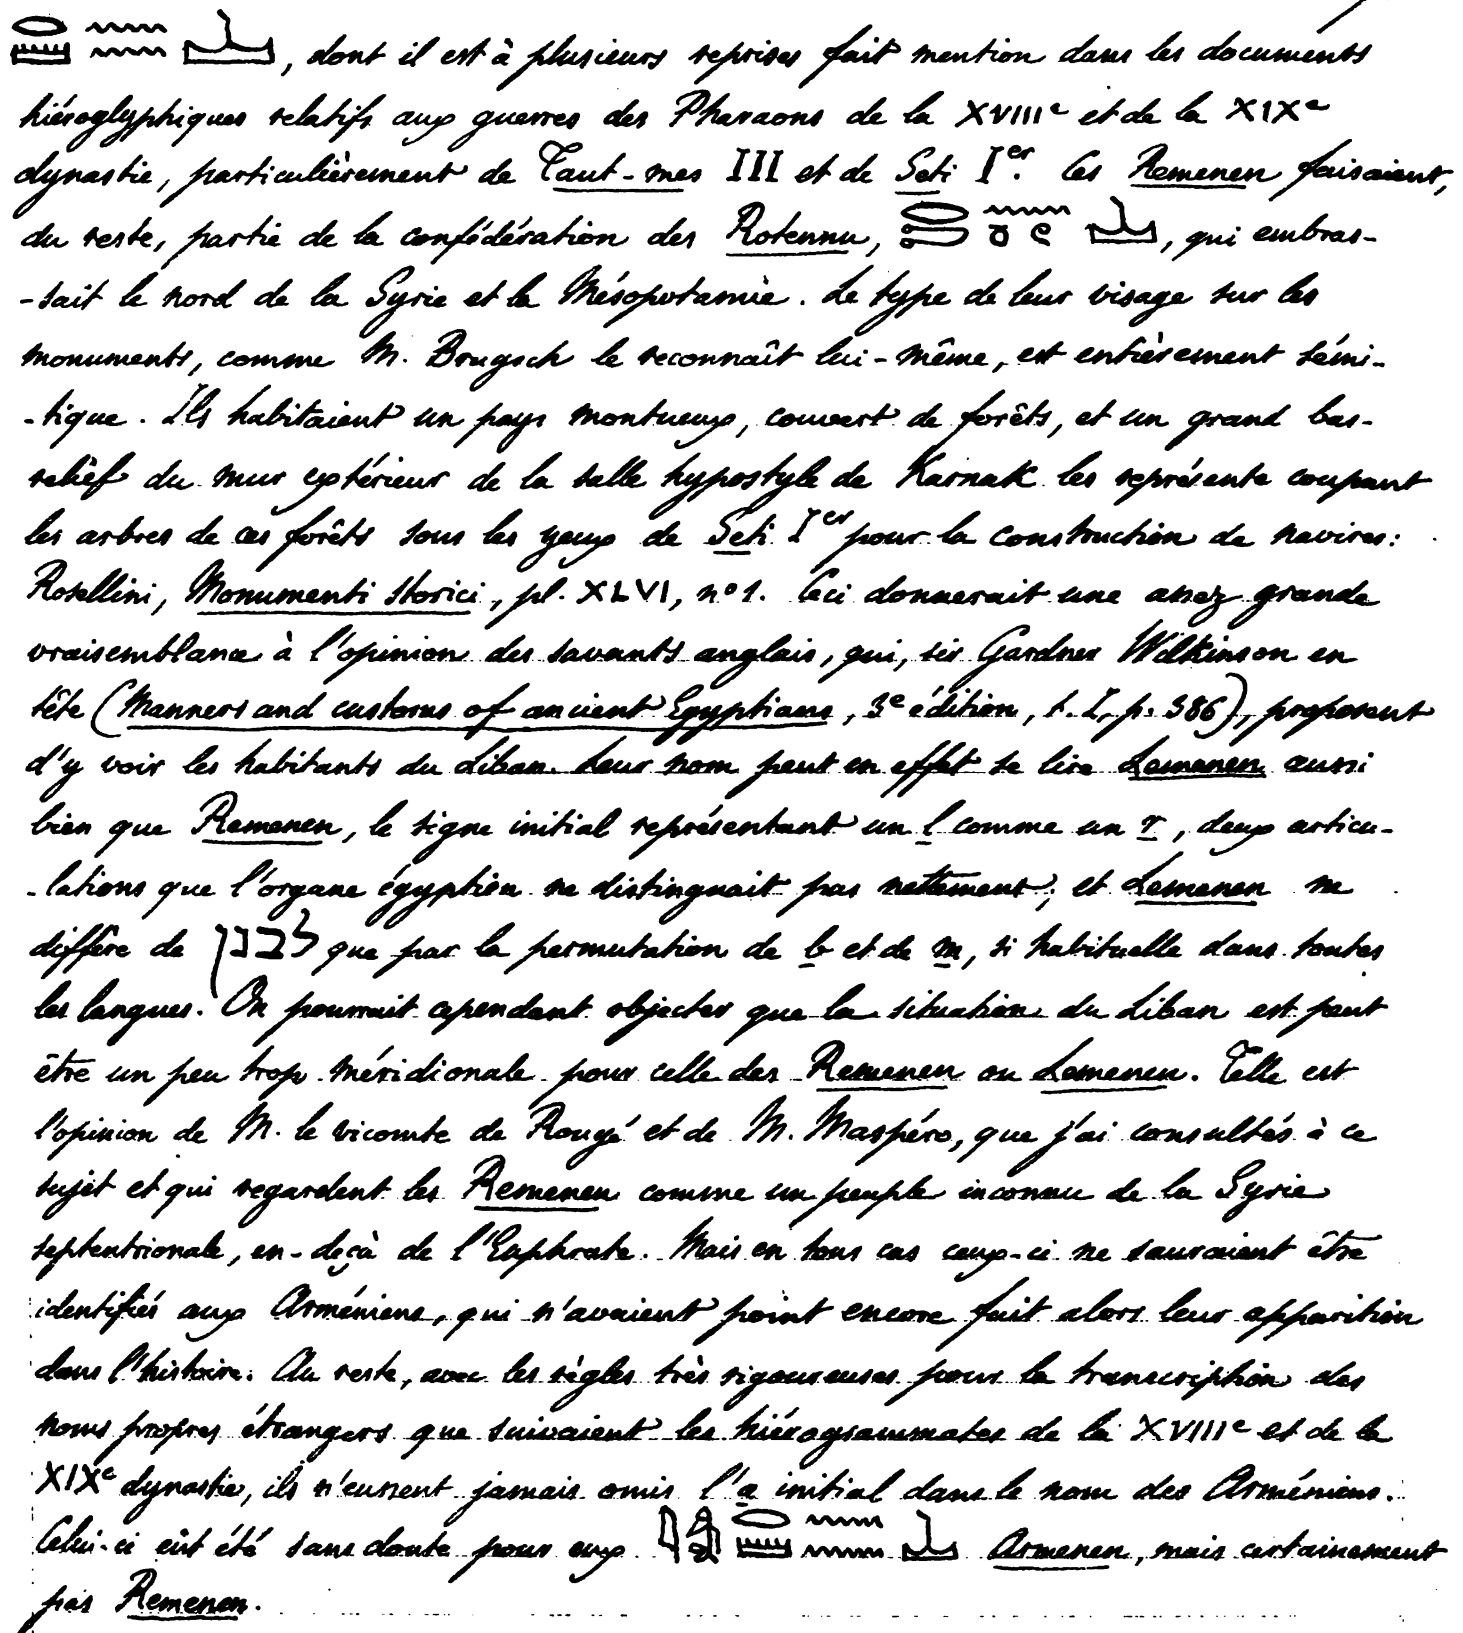 , dont il est à plusieurs reprises fait mention dans les documents
hiéroglyphiques relatifs aux guerres des Pharaons de la XVIIIe et de la XIXe
dynastie, particulièrement de Taut-mes III et de Seti Ier. Ces Remenen faisaient,
du reste, partie de la confédération des Rotennu, , qui embras-
-sait le nord de la Syrie et la Mésopotamie. Le type de leur visage sur les
monuments, comme M. Brugsch le reconnaît lui-même, est entièrement sémi-
-tique. Ils habitaient un pays montueux, couvert de forêts, et un grand bas-
relief du mur extérieur de la salle hypostyle de Karnak les représente coupant
les arbres de ces forêts sous les yeux de Seti Ier pour la construction de navires:
Rosellini, Monumenti storici, pl. XLVI, no 1. Ceci donnerait une assez grande
vraisemblance à l'opinion des savants anglais, qui, sir Gardner Wilkinson en
tête (Manners and customs of ancient Egyptians, 3e édition, t. I, p. 386), proposent
d'y voir les habitants du Liban. Leur nom peut en effet se lire Lemenen aussi
bien que Remenen, le signe initial représentant un l comme un r, deux articu-
-lations que l'organe égyptien ne distinguait pas nettement; et Lemenen ne
diffère de לבנן que par la permutation de b et de m, si habituelle dans toutes
les langues. On pourrait cependant objecter que la situation du Liban est peut
être un peu trop méridionale pour celle des Remenen ou Lemenen. Telle est
l'opinion de M. le vicomte de Rougé et de M. Maspéro, que j'ai consultés à ce
sujet et qui regardent les Remenen comme un peuple inconnu de la Syrie
septentrionale, en-deçà de l'Euphrate. Mais en tous cas ceux-ci ne sauraient être
identifiés aux Arméniens, qui n'avaient point encore fait alors leur apparition
dans l'histoire. Au reste, avec les règles très rigoureuses pour la transcription des
noms propres étrangers que suivaient les hiérogrammates de la XVIIIe et de la
XIXe dynastie, ils n'eussent jamais omis l'a initial dans le nom des Arméniens.
Celui-ci eût été sans doute pour eux Armenen, mais certainement
pas Remenen.